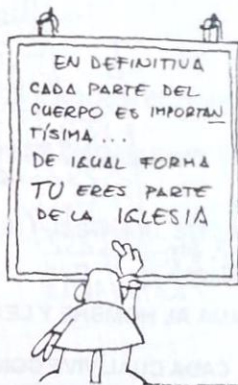 EN DEFINITIVA
CADA PARTE DEL
CUERPO ES IMPORTAN
TÍSIMA...
DE IGUAL FORMA
TU ERES PARTE
DE LA IGLESIA